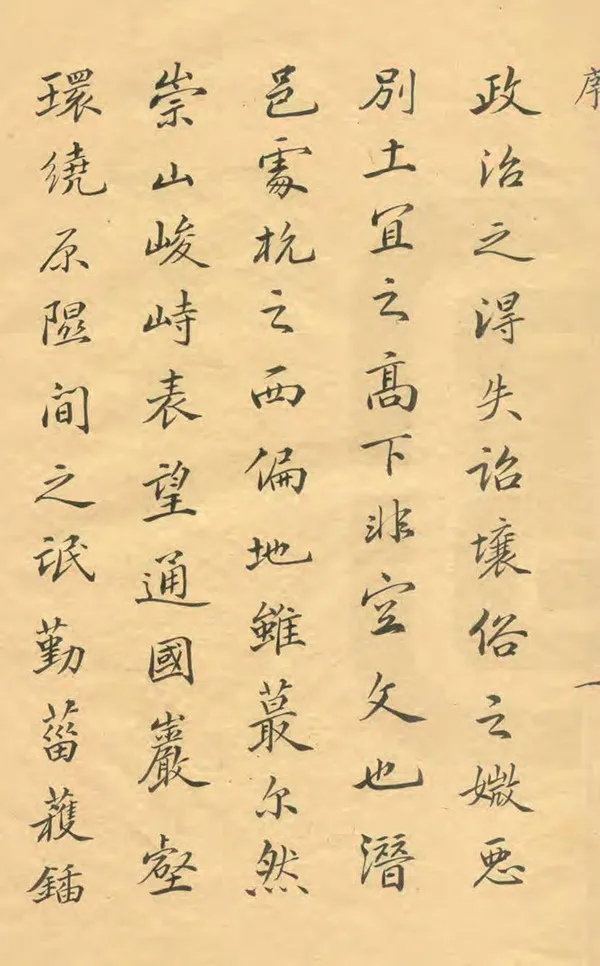 序 一
政治之得失詔壤俗之媺惡
別土冝之髙下非空文也潛
邑處杭之西偏地雖蕞尔然
崇山峻峙表望通國巖壑
環繞原隰間之氓勤菑穫鍤